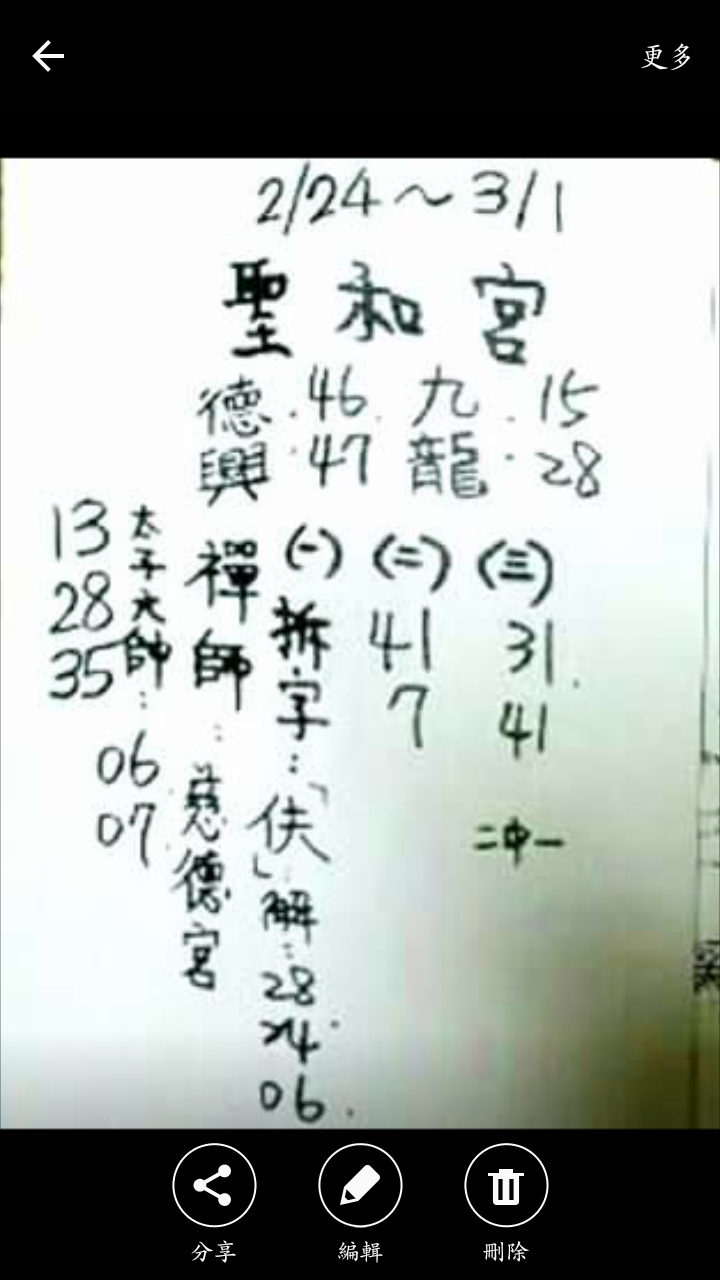 更多
2/24～3/1
聖和宮
德興：46 47
九龍：15 28
(一)拆字：「伕」解：28 24 06
(二) 41 7
(三) 31 41
二中一
禪師：慈德宮
太子大師：06 07
13 28 35
分享
編輯
刪除